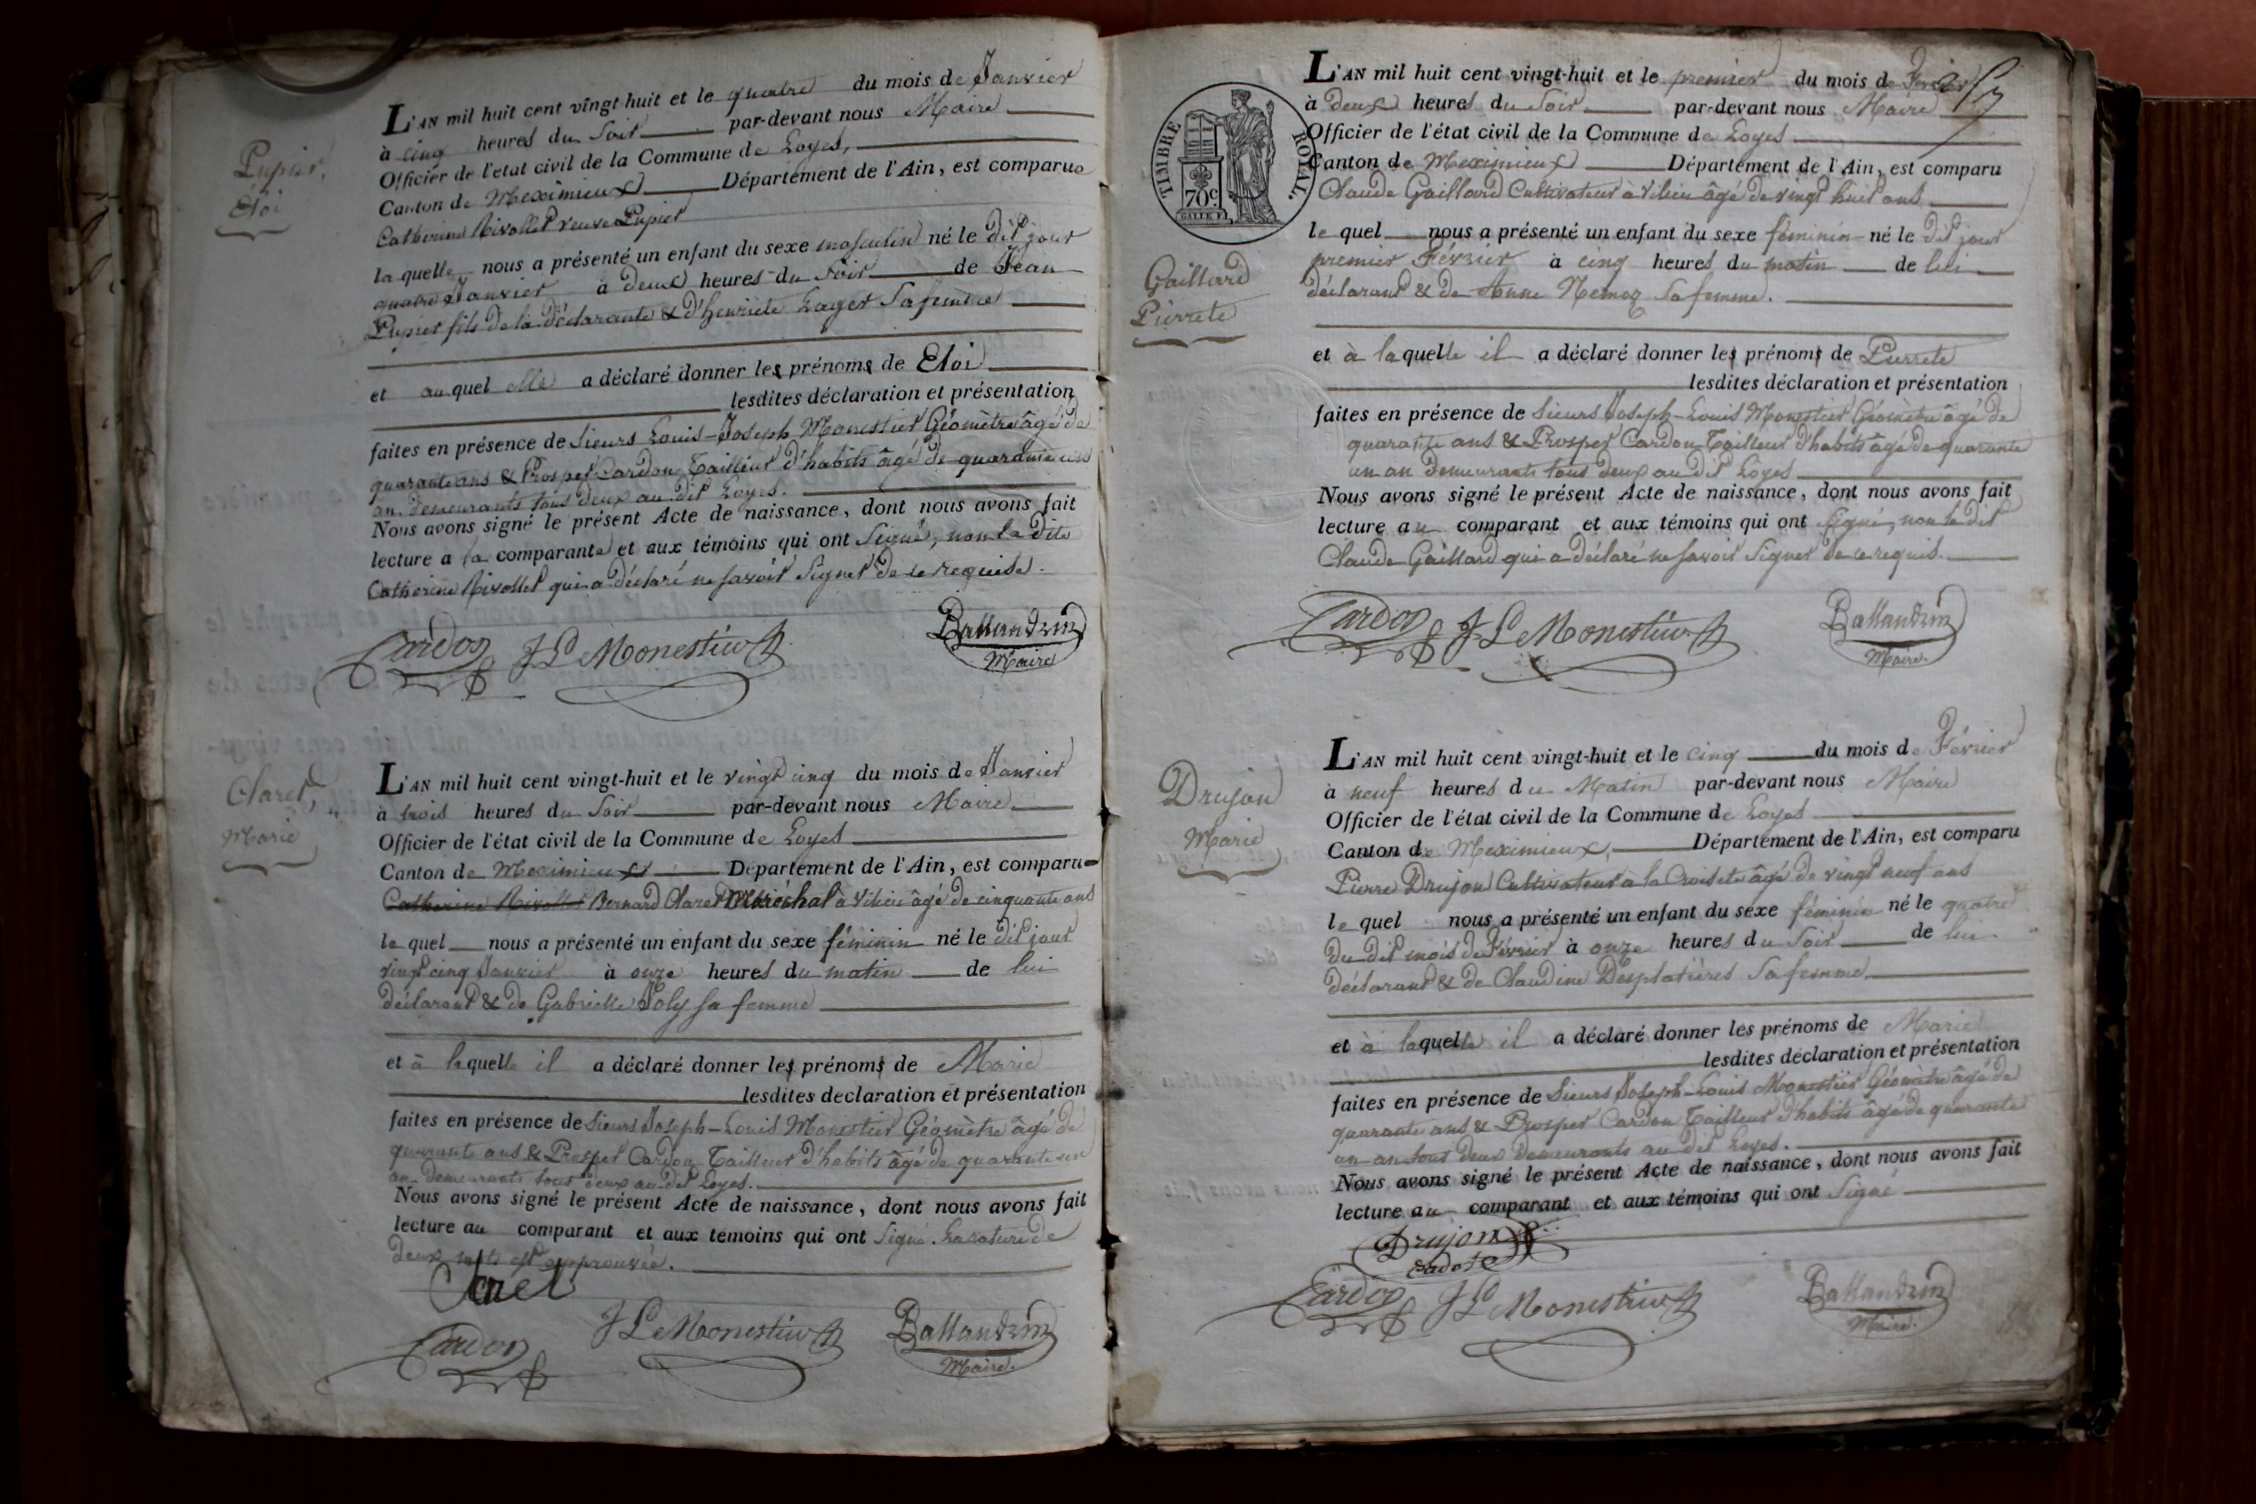 Pupier,
Éloi
L'AN mil huit cent vingt-huit et le quatre du mois de Janvier
à cinq heures du Soir par-devant nous Maire
Officier de l'état civil de la Commune de Loyes,
Canton de Meximieux Département de l'Ain, est comparue
Catherine Rivollet veuve Pupier
la quelle nous a présenté un enfant du sexe masculin né le dit jour
quatre Janvier à deux heures du Soir de Jean
Pupier fils de la déclarante & d'henriète Lager Sa femme
et au quel elle a déclaré donner les prénoms de Eloi
lesdites déclaration et présentation
faites en présence de Sieurs Louis-Joseph Monestier Géomètre âgé de
quarante ans & Prosper Cardon Tailleur d'habits âgé de quarante un
an demeurants tous deux au dit Loyes.
Nous avons signé le présent Acte de naissance, dont nous avons fait
lecture a la comparante et aux témoins qui ont Signé, non la dite
Catherine Rivollet qui a déclaré ne savoir Signer de ce requise.
Cardon J L Monestier Ballandrin
Maire
Claret,
Marie
L'AN mil huit cent vingt-huit et le vingt cinq du mois de Janvier
à trois heures du Soir par-devant nous Maire
Officier de l'état civil de la Commune de Loyes
Canton de Meximieux Département de l'Ain, est comparu
Catherine Rivollet Bernard Claret Maréchal à Vilieu âgé de cinquante ans
le quel nous a présenté un enfant du sexe féminin né le dit jour
vingt cinq Janvier à onze heures du matin de lui
déclarant & de Gabrielle Joly sa femme
et à laquelle il a déclaré donner les prénoms de Marie
lesdites declaration et présentation
faites en présence de Sieurs Joseph-Louis Monestier Géomètre âgé de
quarante ans & Prosper Cardon Tailleur d'habits âgé de quarante un
an demeurants tous deux au dit Loyes.
Nous avons signé le présent Acte de naissance, dont nous avons fait
lecture au comparant et aux temoins qui ont Signé. La rature de
deux mots est approuvée.
Claret
Cardon J L Monestier Ballandrin
Maire.
L'AN mil huit cent vingt-huit et le premier du mois de Février
à deux heures du Soir par-devant nous Maire
Officier de l'état civil de la Commune de Loyes
Canton de Meximieux Département de l'Ain, est comparu
Claude Gaillard Cultivateur à Vilieu âgé de vingt huit ans
TIMBRE ROYAL.
70c.
Gaillard
Pierrete
le quel nous a présenté un enfant du sexe féminin né le dit jour
premier Février à cinq heures du matin de lui
déclarant & de Anne Nemoz Sa femme.
et à laquelle il a déclaré donner les prénoms de Pierrete
lesdites déclaration et présentation
faites en présence de Sieurs Joseph-Louis Monestier Géomètre âgé de
quarante ans & Prosper Cardon Tailleur d'habits âgé de quarante
un an demeurants tous deux au dit Loyes
Nous avons signé le présent Acte de naissance, dont nous avons fait
lecture au comparant et aux témoins qui ont Signé, non le dit
Claude Gaillard qui a déclaré ne savoir Signer de ce requis.
Cardon J L Monestier Ballandrin
Maire.
Drujon
Marie
L'AN mil huit cent vingt-huit et le cinq du mois de Février
à neuf heures du Matin par-devant nous Maire
Officier de l'état civil de la Commune de Loyes
Canton de Meximieux, Département de l'Ain, est comparu
Pierre Drujon Cultivateur à la Croisete âgé de vingt neuf ans
le quel nous a présenté un enfant du sexe féminin né le quatre
du dit mois de Février à onze heures du Soir de lui
déclarant & de Claudine Desplatières Sa femme
et à laquelle il a déclaré donner les prénoms de Marie
lesdites déclaration et présentation
faites en présence de Sieurs Joseph-Louis Monestier Géomètre âgé de
quarante ans & Prosper Cardon Tailleur d'habits âgé de quarante
un an tous deux demeurants au dit Loyes.
Nous avons signé le présent Acte de naissance, dont nous avons fait
lecture au comparant et aux témoins qui ont Signé
Drujon
Cadet
Cardon J L Monestier Ballandrin
Maire.